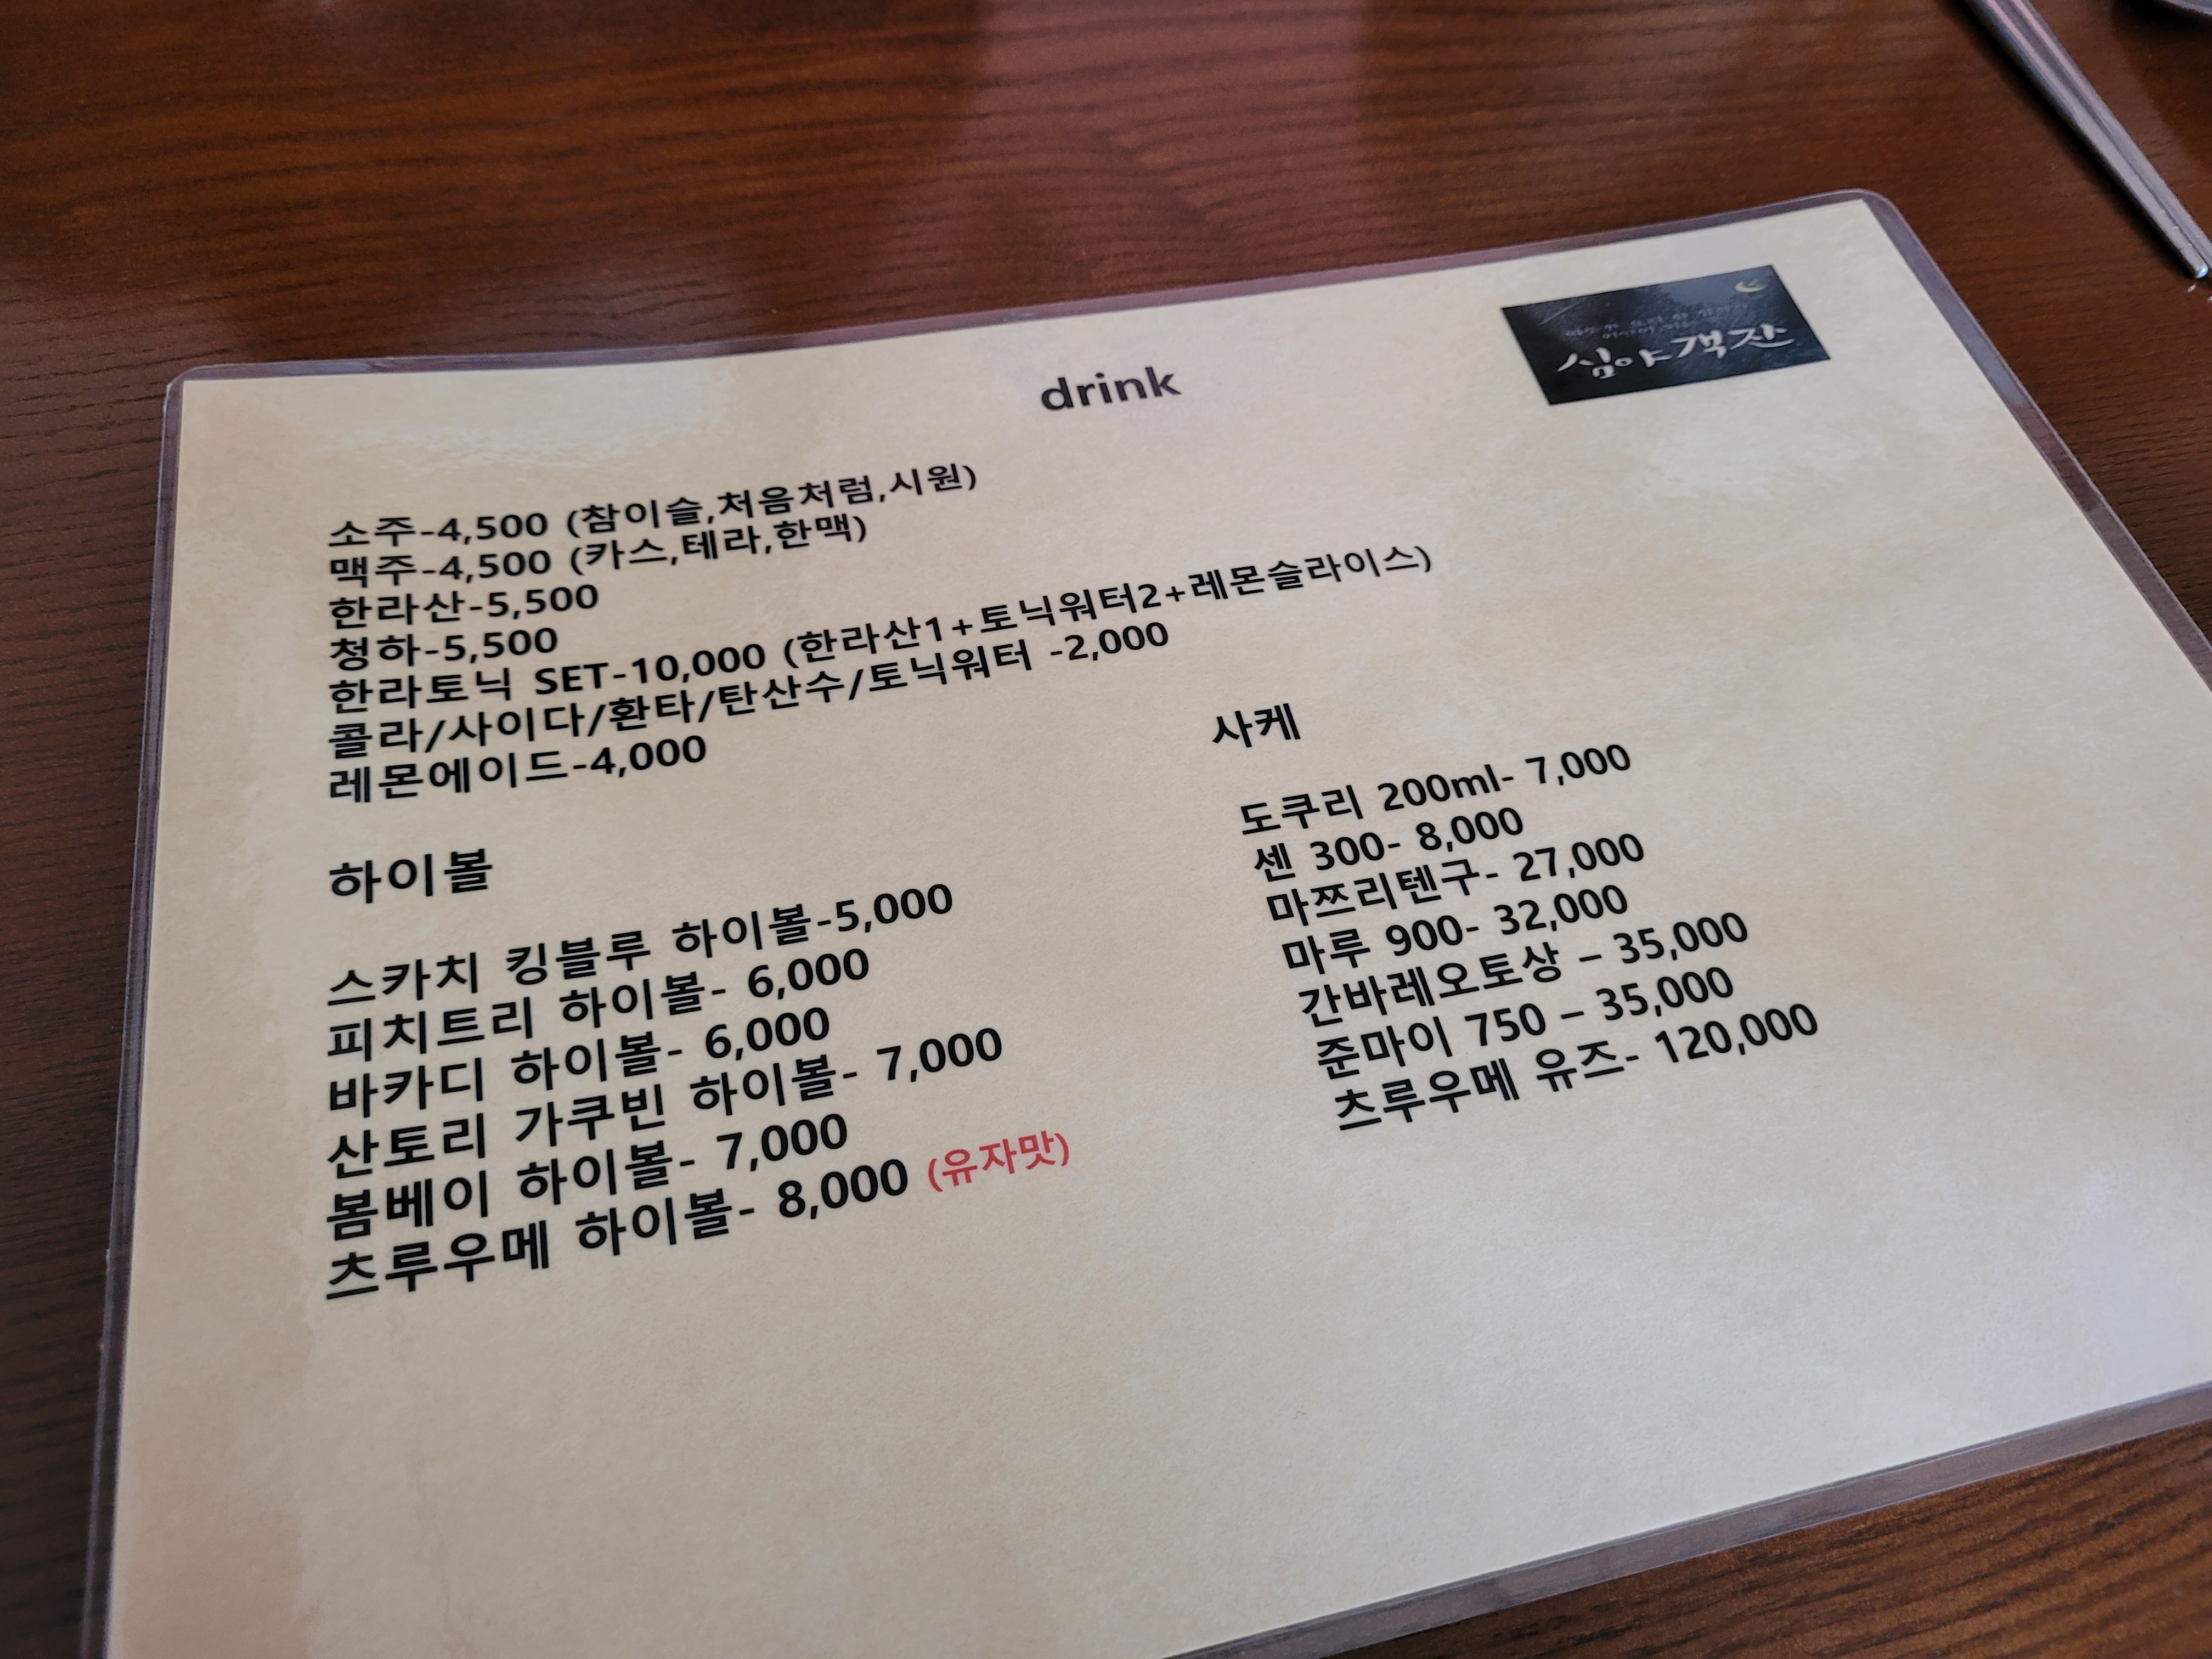 drink
심야객잔
소주-4,500 (참이슬,처음처럼,시원)
맥주-4,500 (카스,테라,한맥)
한라산-5,500
청하-5,500
한라토닉 SET-10,000 (한라산1+토닉워터2+레몬슬라이스)
콜라/사이다/환타/탄산수/토닉워터 -2,000
레몬에이드-4,000
하이볼
스카치 킹블루 하이볼-5,000
피치트리 하이볼- 6,000
바카디 하이볼- 6,000
산토리 가쿠빈 하이볼- 7,000
봄베이 하이볼- 7,000
츠루우메 하이볼- 8,000 (유자맛)
사케
도쿠리 200ml- 7,000
센 300- 8,000
마쯔리텐구- 27,000
마루 900- 32,000
간바레오토상 – 35,000
준마이 750 – 35,000
츠루우메 유즈- 120,000